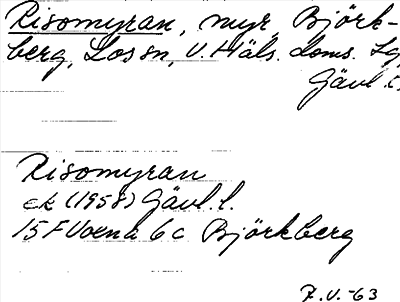 Risomyran, myr, Björk-
berg, Los sn, V. Häls. doms. Lg,
Gävl. l.
Risomyran
ek (1958) Gävl. l.
15F Voxna 6c Björkberg
F. V. -63